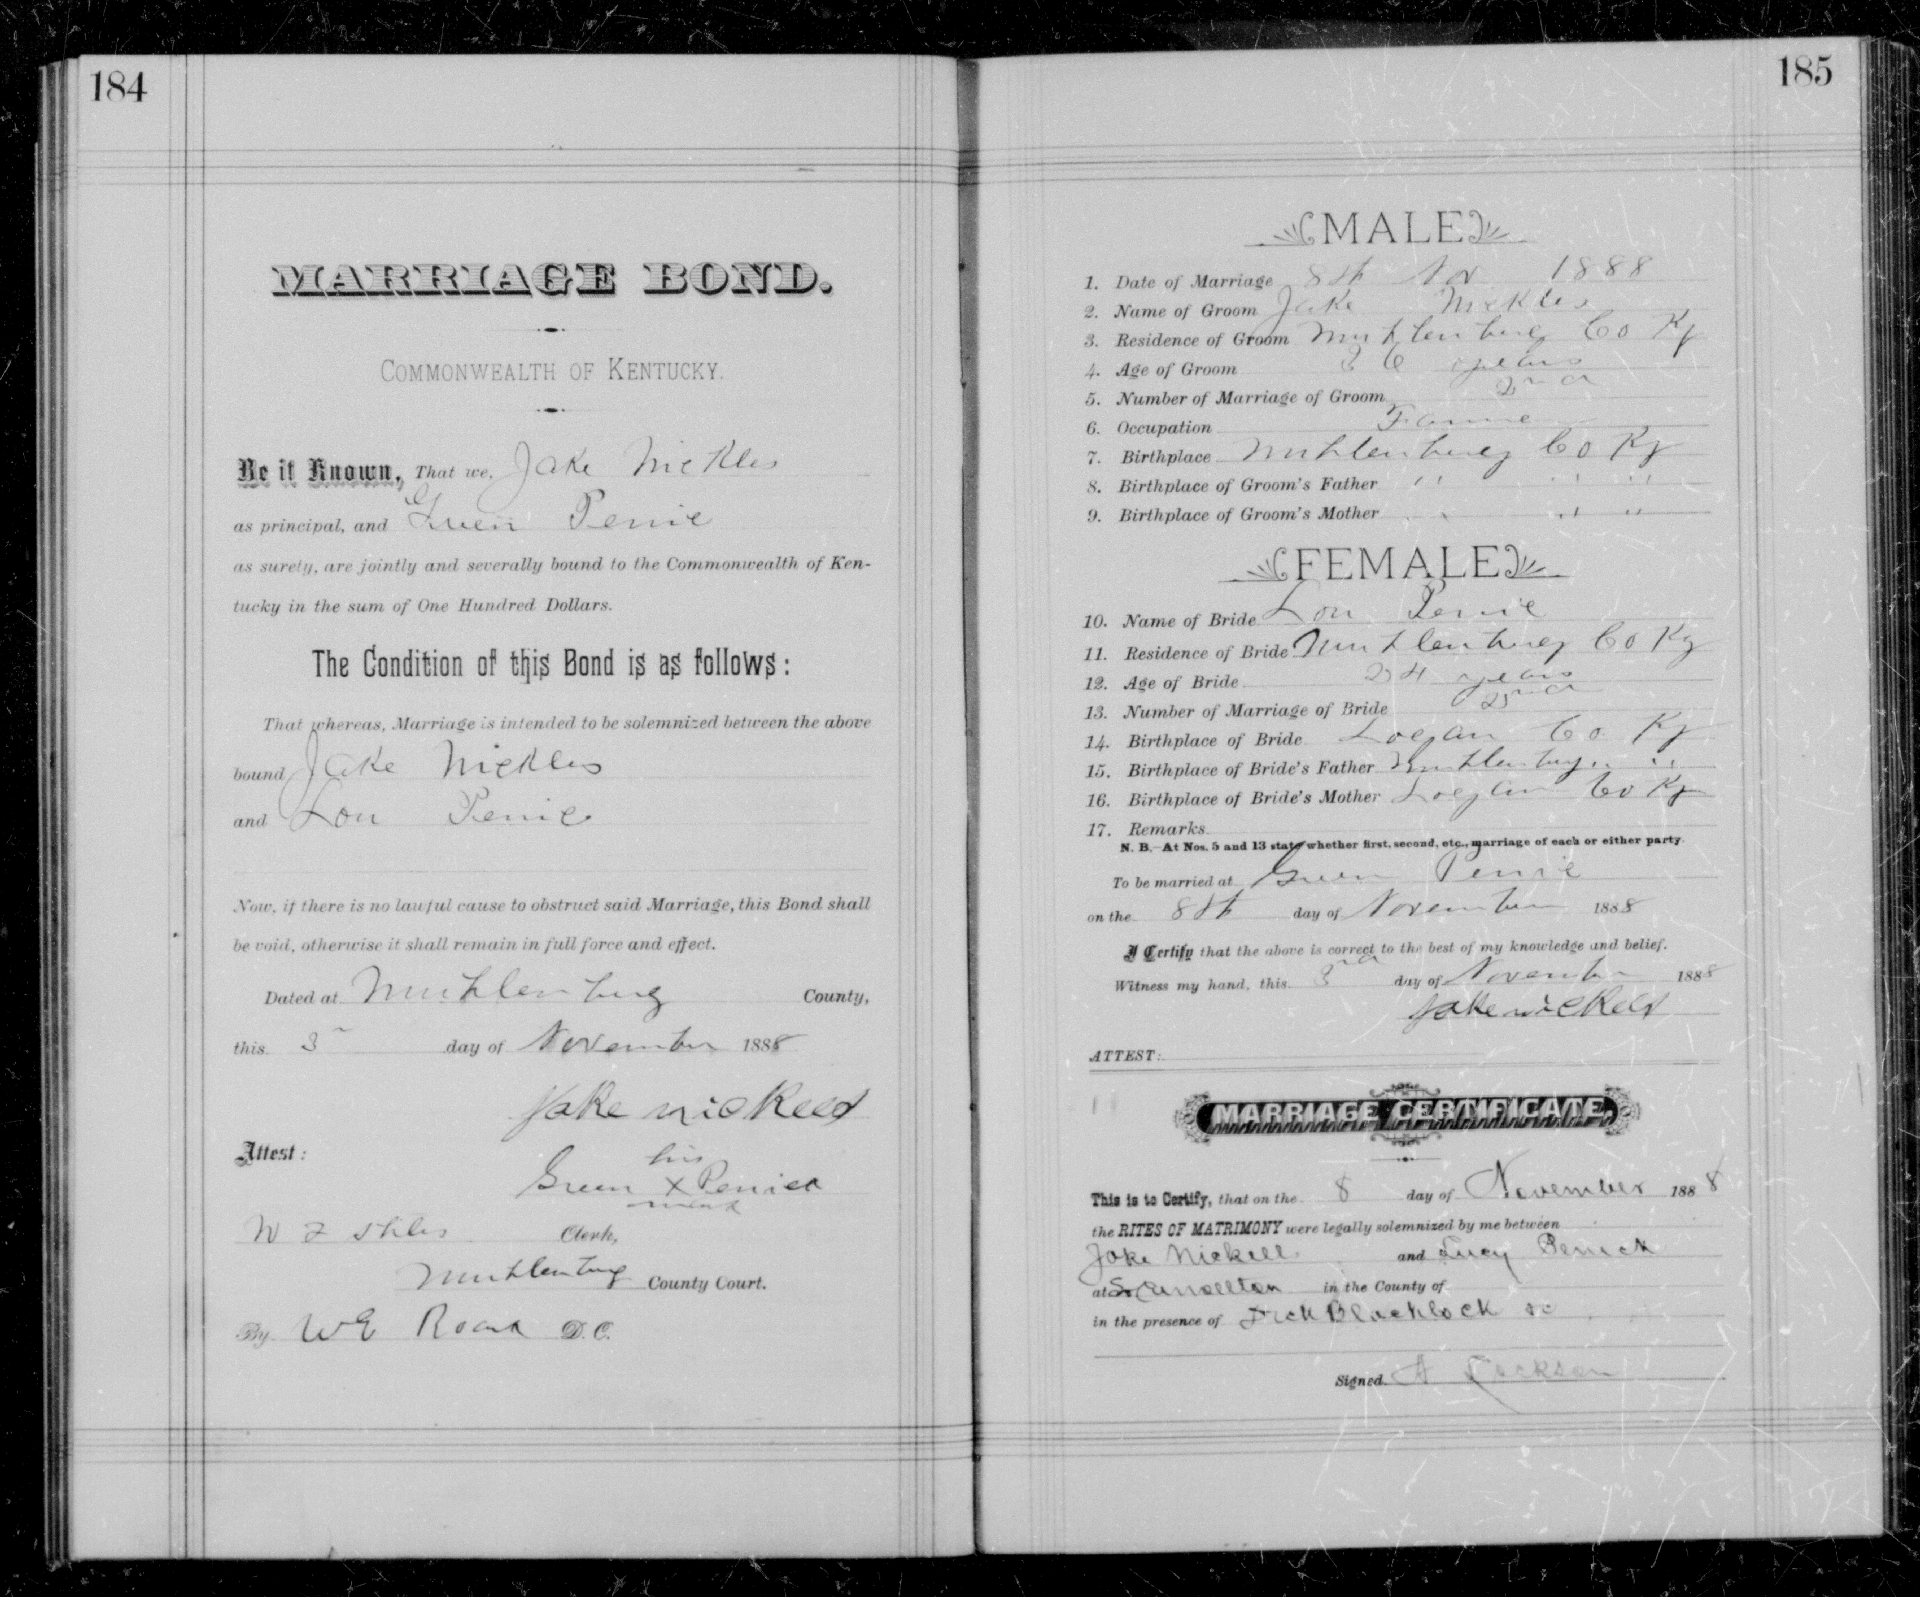 184
MARRIAGE BOND.
COMMONWEALTH OF KENTUCKY.
Be it Known, That we, Jake Nickles
as principal, and Green Penic
as surety, are jointly and severally bound to the Commonwealth of Ken-
tucky in the sum of One Hundred Dollars.
The Condition of this Bond is as follows:
That whereas, Marriage is intended to be solemnized between the above
bound Jake Nickles
and Lou Penic
Now, if there is no lawful cause to obstruct said Marriage, this Bond shall
be void, otherwise it shall remain in full force and effect.
Dated at Muhlenburg County,
this 3 day of November 1888
Jake
Attest:
his
Green X
mark
W Clerk,
Muhlenburg County Court.
By W E D. C.
185
MALE
1. Date of Marriage 8th Nov 1888
2. Name of Groom Jake Nickles
3. Residence of Groom Muhlenburg Co Ky
4. Age of Groom years
5. Number of Marriage of Groom 2nd
6. Occupation
7. Birthplace Muhlenburg Co Ky
8. Birthplace of Groom's Father " " "
9. Birthplace of Groom's Mother " " "
FEMALE
10. Name of Bride Lou Penic
11. Residence of Bride Muhlenburg Co Ky
12. Age of Bride 24 years
13. Number of Marriage of Bride 2nd
14. Birthplace of Bride Logan Co Ky
15. Birthplace of Bride's Father Muhlenburg " "
16. Birthplace of Bride's Mother Logan Co Ky
17. Remarks
N. B.—At Nos. 5 and 13 state whether first, second, etc., marriage of each or either party.
To be married at Green Penic
on the 8th day of November 1888
I Certify that the above is correct to the best of my knowledge and belief.
Witness my hand, this 3rd day of November 1888
Jake
ATTEST:
MARRIAGE CERTIFICATE.
This is to Certify, that on the 8 day of November 1888
the RITES OF MATRIMONY were legally solemnized by me between
Jake Nickell and Lucy Penick
at in the County of
in the presence of Dick Blacklock
Signed